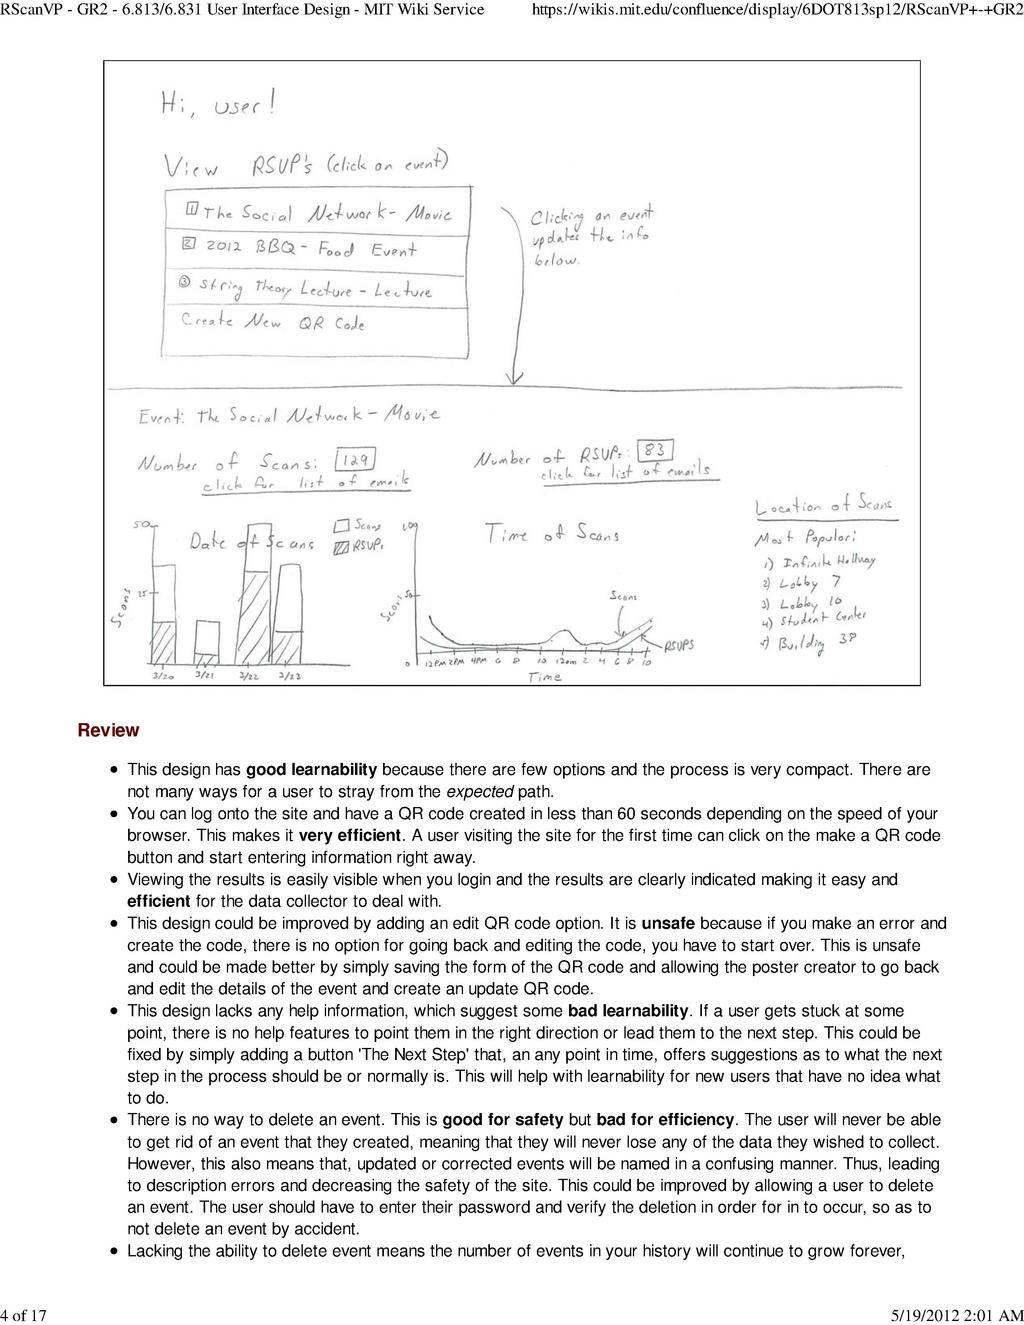 RScanVP - GR2 - 6.813/6.831 User Interface Design - MIT Wiki Service
https://wikis.mit.edu/confluence/display/6DOT813sp12/RScanVP+-+GR2
Hi, user!
View RSVP's (click on event)
1 The Social Network - Movie
2 2012 BBQ - Food Event
3 String Theory Lecture - Lecture
Create New QR Code
Clicking an event
updates the info
below.
Event: The Social Network - Movie
Number of Scans: 129
click for list of emails
Number of RSVPs: 83
click for list of emails
Date of Scans
Scans
RSVPs
50
25
Scans
3/20 3/21 3/22 3/23
Time of Scans
100
50
0
Scans
Scans
RSVPS
12PM 2PM 4PM 6 8 10 12am 2 4 6 8 10
Time
Location of Scans
Most Popular:
1) Infinite Hallway
2) Lobby 7
3) Lobby 10
4) Student Center
5) Building 38
Review
• This design has good learnability because there are few options and the process is very compact. There are
not many ways for a user to stray from the expected path.
• You can log onto the site and have a QR code created in less than 60 seconds depending on the speed of your
browser. This makes it very efficient. A user visiting the site for the first time can click on the make a QR code
button and start entering information right away.
• Viewing the results is easily visible when you login and the results are clearly indicated making it easy and
efficient for the data collector to deal with.
• This design could be improved by adding an edit QR code option. It is unsafe because if you make an error and
create the code, there is no option for going back and editing the code, you have to start over. This is unsafe
and could be made better by simply saving the form of the QR code and allowing the poster creator to go back
and edit the details of the event and create an update QR code.
• This design lacks any help information, which suggest some bad learnability. If a user gets stuck at some
point, there is no help features to point them in the right direction or lead them to the next step. This could be
fixed by simply adding a button 'The Next Step' that, an any point in time, offers suggestions as to what the next
step in the process should be or normally is. This will help with learnability for new users that have no idea what
to do.
• There is no way to delete an event. This is good for safety but bad for efficiency. The user will never be able
to get rid of an event that they created, meaning that they will never lose any of the data they wished to collect.
However, this also means that, updated or corrected events will be named in a confusing manner. Thus, leading
to description errors and decreasing the safety of the site. This could be improved by allowing a user to delete
an event. The user should have to enter their password and verify the deletion in order for in to occur, so as to
not delete an event by accident.
• Lacking the ability to delete event means the number of events in your history will continue to grow forever,
4 of 17
5/19/2012 2:01 AM